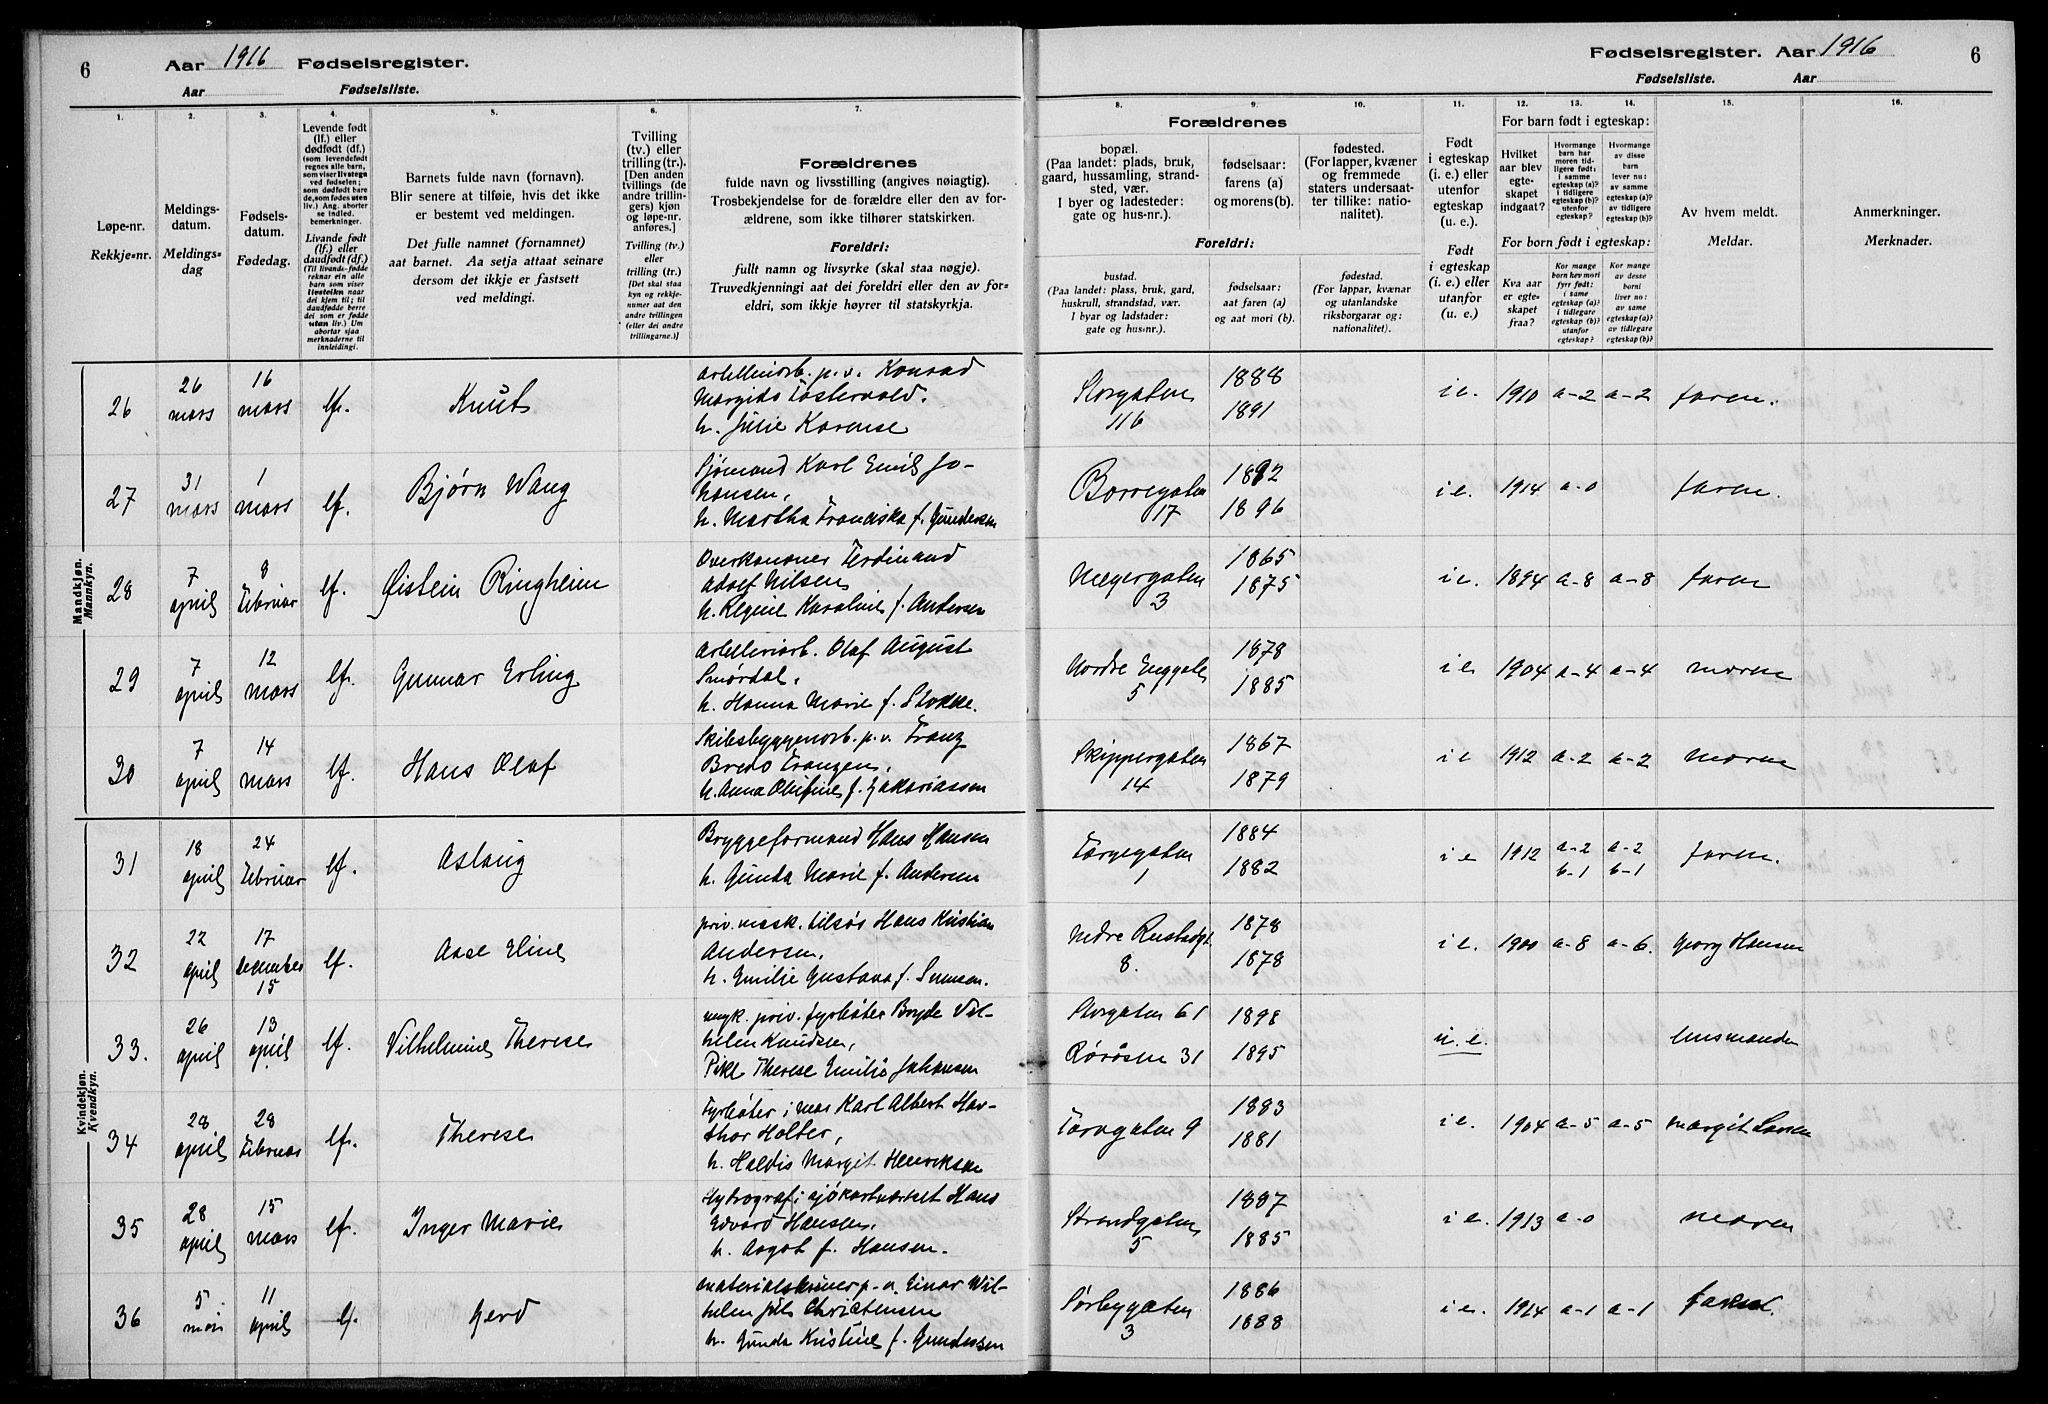 6
Aar 1916 Fødselsregister.
Aar Fødselsliste.
Fødselsregister. Aar 1916
6
Fødselsliste. Aar
1.
Løpe-nr.
Rekkje-nr.
2.
Meldings-
datum.
Meldings-
dag
3.
Fødsels-
datum.
Fødedag.
4.
Levende født
(lf.) eller
dødfødt (df.)
(som levendefødt
regnes alle barn,
som viser livstegn
ved fødselen;
som dødfødt bare
de, som fødes uten
liv.) Ang. aborter
se indled.
bemerkninger.
Livande født
(lf.) eller
daudfødt (df.)
(Til livande-fødde
reknar ein alle
barn som viser
livsteikn naar
dei kjem til; til
daudfødde berre
dei som er fødde
utan liv.) Um
abortar sjaa
merknaderne til
innleidingi.
5.
Barnets fulde navn (fornavn).
Blir senere at tilføie, hvis det ikke
er bestemt ved meldingen.
Det fulle namnet (fornamnet)
aat barnet. Aa setja attaat seinare
dersom det ikkje er fastsett
ved meldingi.
6.
Tvilling
(tv.) eller
trilling (tr.).
[Den anden
tvillings (de
andre trillin-
gers) kjøn
og løpe-nr.
anføres.]
Tvilling (tv.)
eller
trilling (tr.)
[Det skal staa
kyn og rekkje-
numer aat den
andre tvillingen
(eller dei andre
trillingarne.)]
7.
Forældrenes
fulde navn og livsstilling (angives nøiagtig).
Trosbekjendelse for de forældre eller den av for-
ældrene, som ikke tilhører statskirken.
Foreldri:
fullt namn og livsyrke (skal staa nøgje).
Truvedkjenningi aat dei foreldri eller den av for-
eldri, som ikkje høyrer til statskyrkja.
8.
Forældrenes
bopæl.
(Paa landet: plads, bruk,
gaard, hussamling, strand-
sted, vær.
I byer og ladesteder:
gate og hus-nr.).
Foreldri:
bustad.
(Paa landet: plass, bruk, gard,
huskrull, strandstad, vær.
I byar og ladstader:
gate og hus-nr.).
9.
fødselsaar:
farens (a)
og morens (b).
fødselsaar:
aat faren (a)
og aat mori (b).
10.
fødested.
(For lapper, kvæner
og fremmede
staters undersaat-
ter tillike: natio-
nalitet).
fødestad.
(For lappar, kvænar
og utanlandske
riksborgarar og:
nationalitet).
11.
Født
i egteskap
(i. e.) eller
utenfor
egteskap
(u. e.).
Født
i egteskap
(i. e.) eller
utanfor
(u. e.)
12. 13. 14.
For barn født i egteskap:
Hvilket
aar blev
egte-
skapet
indgaat?
Hvormange
barn har
moren tid-
ligere født:
i samme
egteskap (a)?
i tidligere
egteskap (b)?
utenfor
egteskap?
Hvormange
av disse
barn
lever nu:
av samme
egteskap (a)?
av tidligere
egteskap (b)?
For born født i egteskap:
Kva aar
er egte-
skapet
fraa?
Kor mange
born hev mori
fyrr født:
i same
egteskap (a)?
i tidlegare
egteskap (b)?
utanfor
egteskap?
Kor mange
av desse
borni
liver no:
av same
egteskap (a)?
av tidlegare
egteskap (b)?
15.
Av hvem meldt.
Meldar.
16.
Anmerkninger.
Merknader.
Mandkjøn.
Mannkyn.
26 26 mars 16 mars lf. Knut
Konrad
h. Julie Karense
Storgaten 116 1888 1891 i e. 1910 a-2 a-2 faren.
27 31 mars 1 mars lf. Bjørn Wang
Sjømand Karl Emil Jo-
hansen,
h. Martha Franciska f. Gundersen
Borregaten 17 1896 i e. 1914 a-0 faren.
28 7 april 8 Februar lf. Øistein Ringheim
Overkanoner Ferdinand
Adolf Nilsen
h. Regine Karoline f. Andersen
3 1865 1875 i e. 1894 a-8 a-8 faren
29 7 april 12 mars lf. Gunnar Erling
Artilleriarb. Olaf August
Smørdal,
h. Hanna Marie f. Stokke.
Nordre Enggate 5 1878 1885 i e 1904 a-4 a-4 moren
30 7 april 14 mars lf. Hans Olaf
Skibsbyggerarb. p.v. Franz
Bredo Franzen,
h. Anna Olefine f. Zakariassen
Skippergaten 14 1867 1879 i e 1912 a-2 a-2 moren
Kvindekjøn.
Kvendkyn.
31 18 april 24 Februar lf. Aslaug
Bryggeformand Hans Hansen
h. Gunda Marie f. Andersen
1 1884 1882 i e 1912 a-2 b-1 a-2 b-1 faren.
32 22 april 17 december 15 lf. Aase Eline
priv. mask. Hans Kristian
Andersen,
h. Emilie Gustava f.
Nedre 8. 1878 1878 i e. 1900 a-8 a-6. Georg Hansen
33. 26 april 13 april lf. Vilhelmine Therese
ungk. priv. fyrbøter Bryde Vil-
helm Knudsen,
Pike Therese Emilie Johansen
Storgaten 61 Røråsen 31 1898 1895 u. e.
34 28 april 28 Februar lf. Therese
Fyrbøter i mar Karl Albert Hav-
thor Holter,
h. Haldis Margit Henriksen
Tårngaten 9 1883 1881 i e. 1904 a-5 a-5 Margit Larsen
35 28 april 15 mars lf. Inger Marie
Hydrograf i sjökartverket Hans
Edvard Hansen,
h. Aagot f. Hansen.
Strandgaten 5 1887 1885 i e. 1913 a-0 moren
36 5 mai 11 april lf. Gerd
materialskriver p-a. Einar Wil-
helm Juls Christensen
h. Gunda Kristine f. Gundersen
Sørbygaten 3 1886 1888 i e. 1914 a-1 a-1 faren.